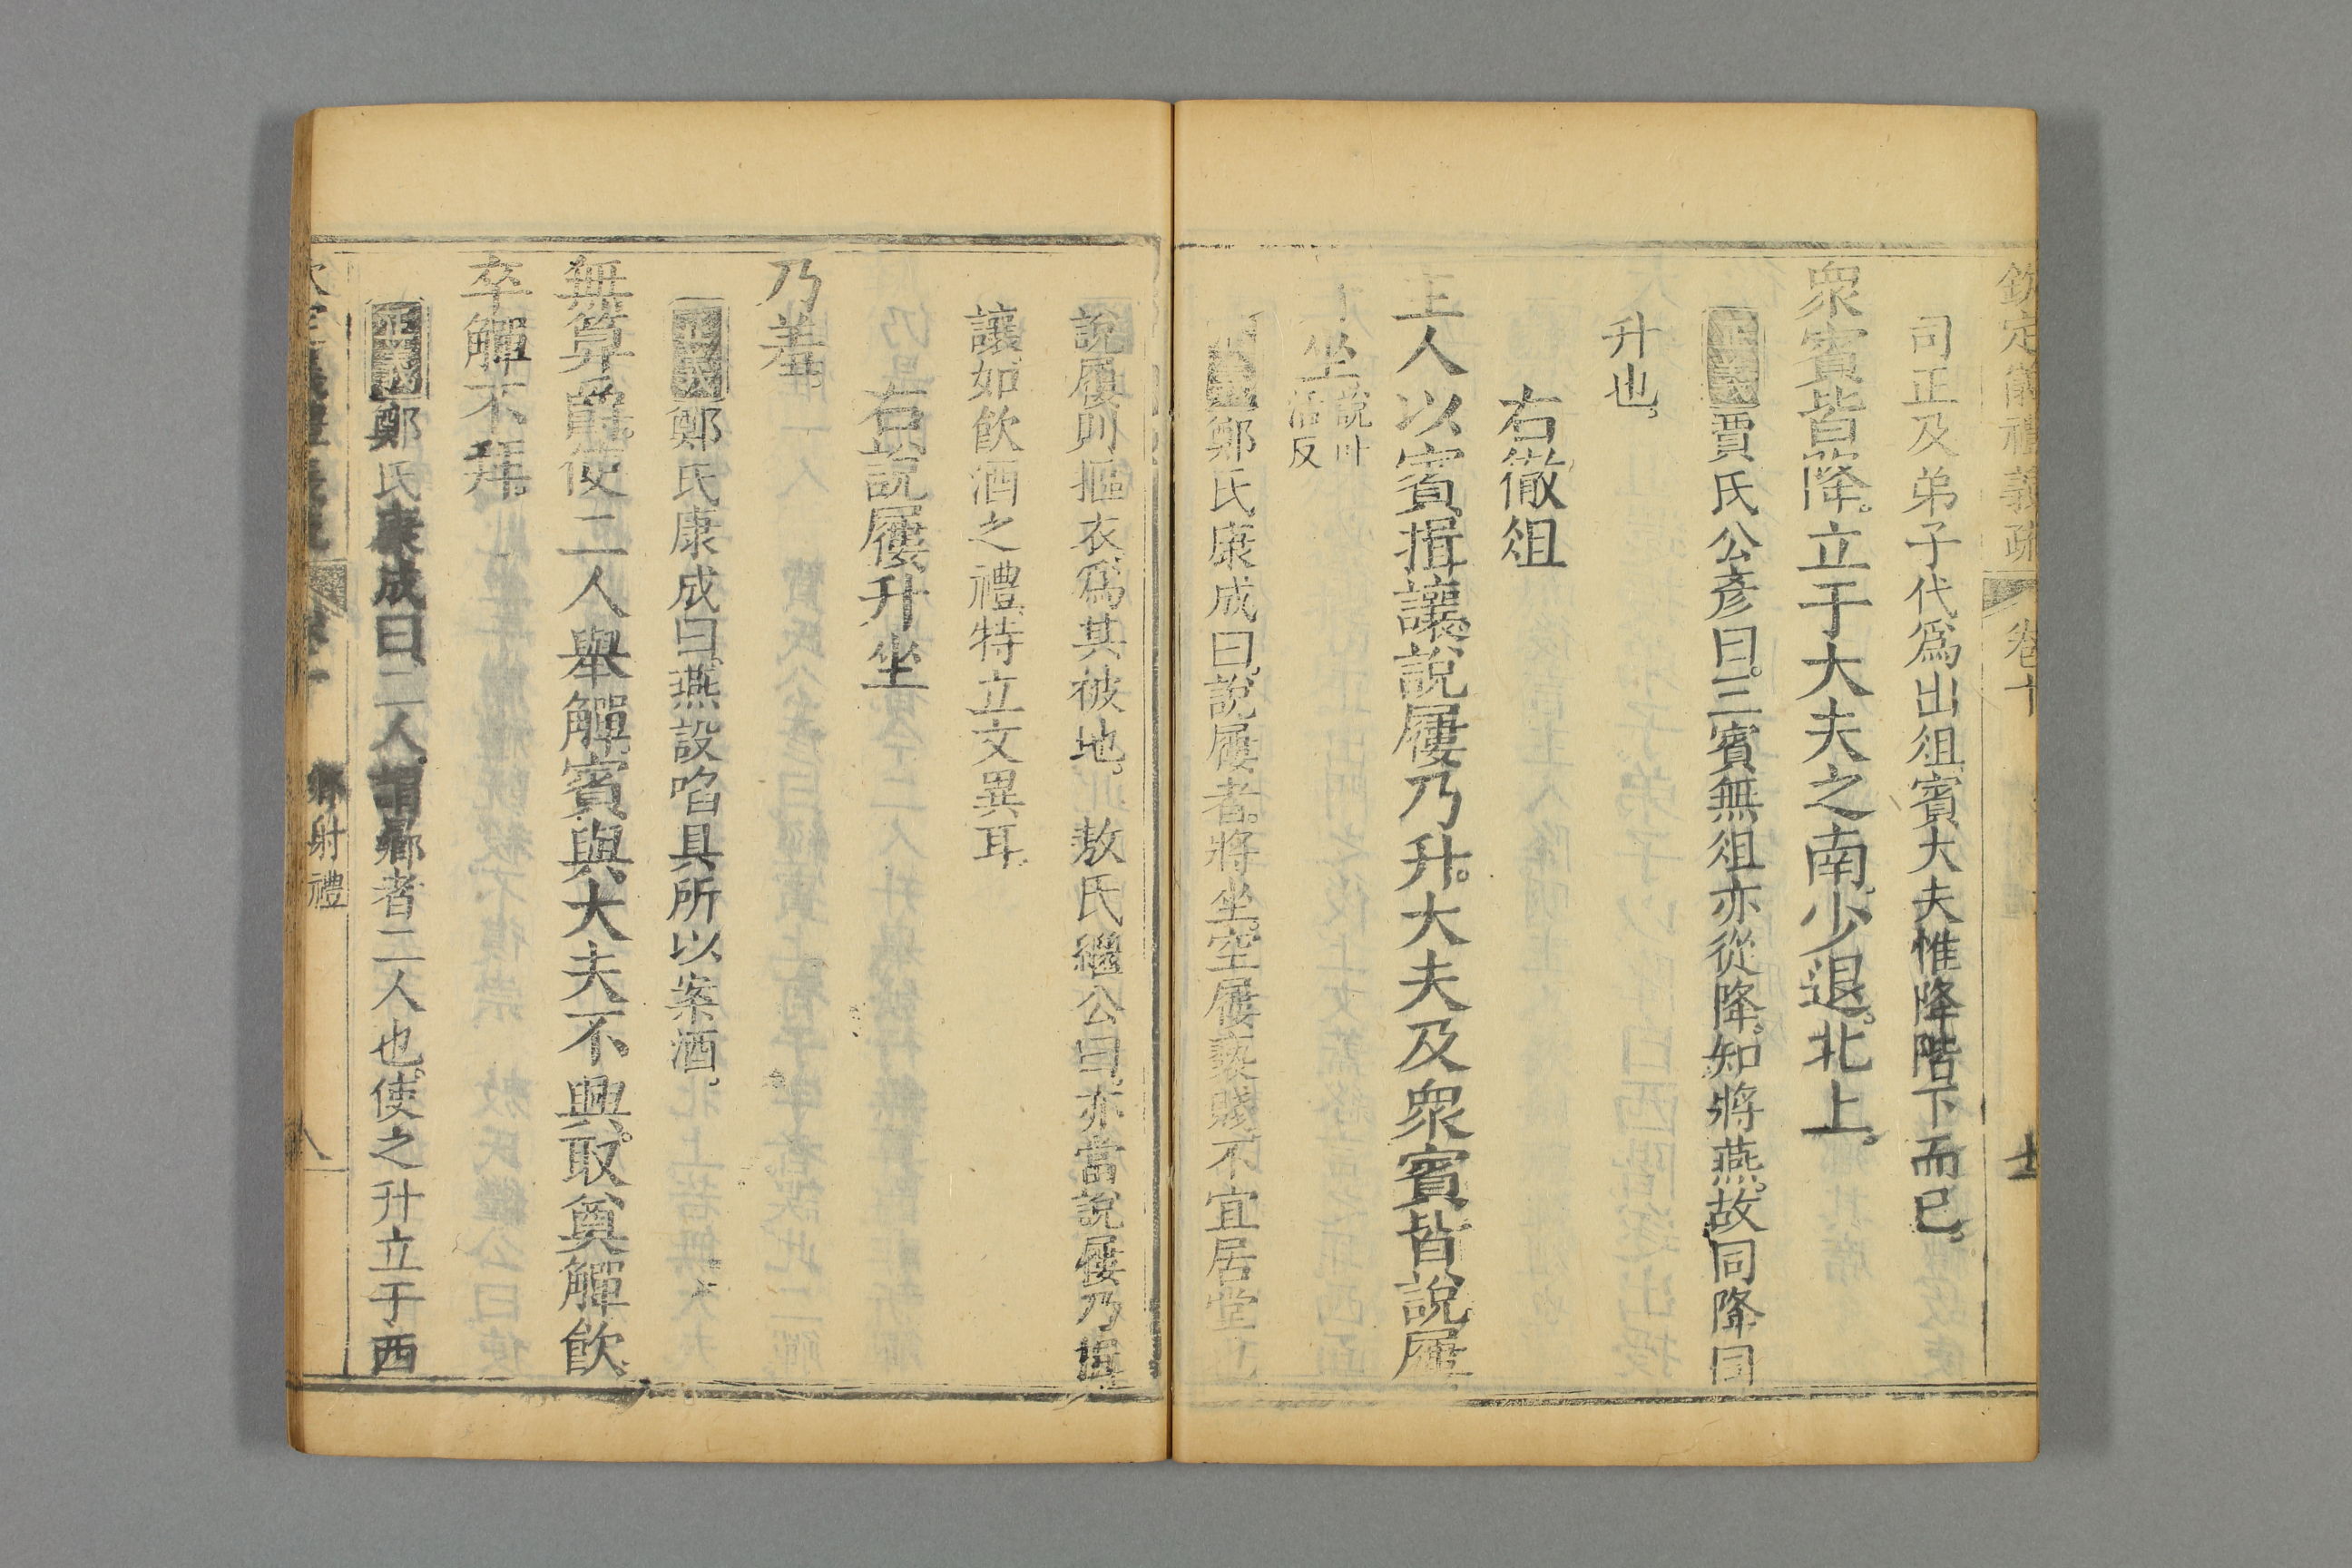 欽定儀禮義疏 卷十
司正及弟子代爲出俎賓大夫惟降階下而已
衆賓皆降立于大夫之南少退北上
正義賈氏公彥曰三賓無俎亦從降知將燕故同降同
升也
右徹俎
主人以賓揖讓說屨乃升大夫及衆賓皆說屨
升坐說吐活反
正義鄭氏康成曰說屨者將坐空屨褻賤不宜居堂也
說屨則摳衣爲其被地 敖氏繼公曰亦當說屨乃揖
讓如飲酒之禮特立文異耳
右說屨升坐
乃羞
正義鄭氏康成曰燕設啗具所以案酒
無算爵使二人舉觶賓與大夫不興取奠觶飲
卒觶不拜
正義鄭氏康成曰二人謂鄉者二人也使之升立于西
鄉射禮